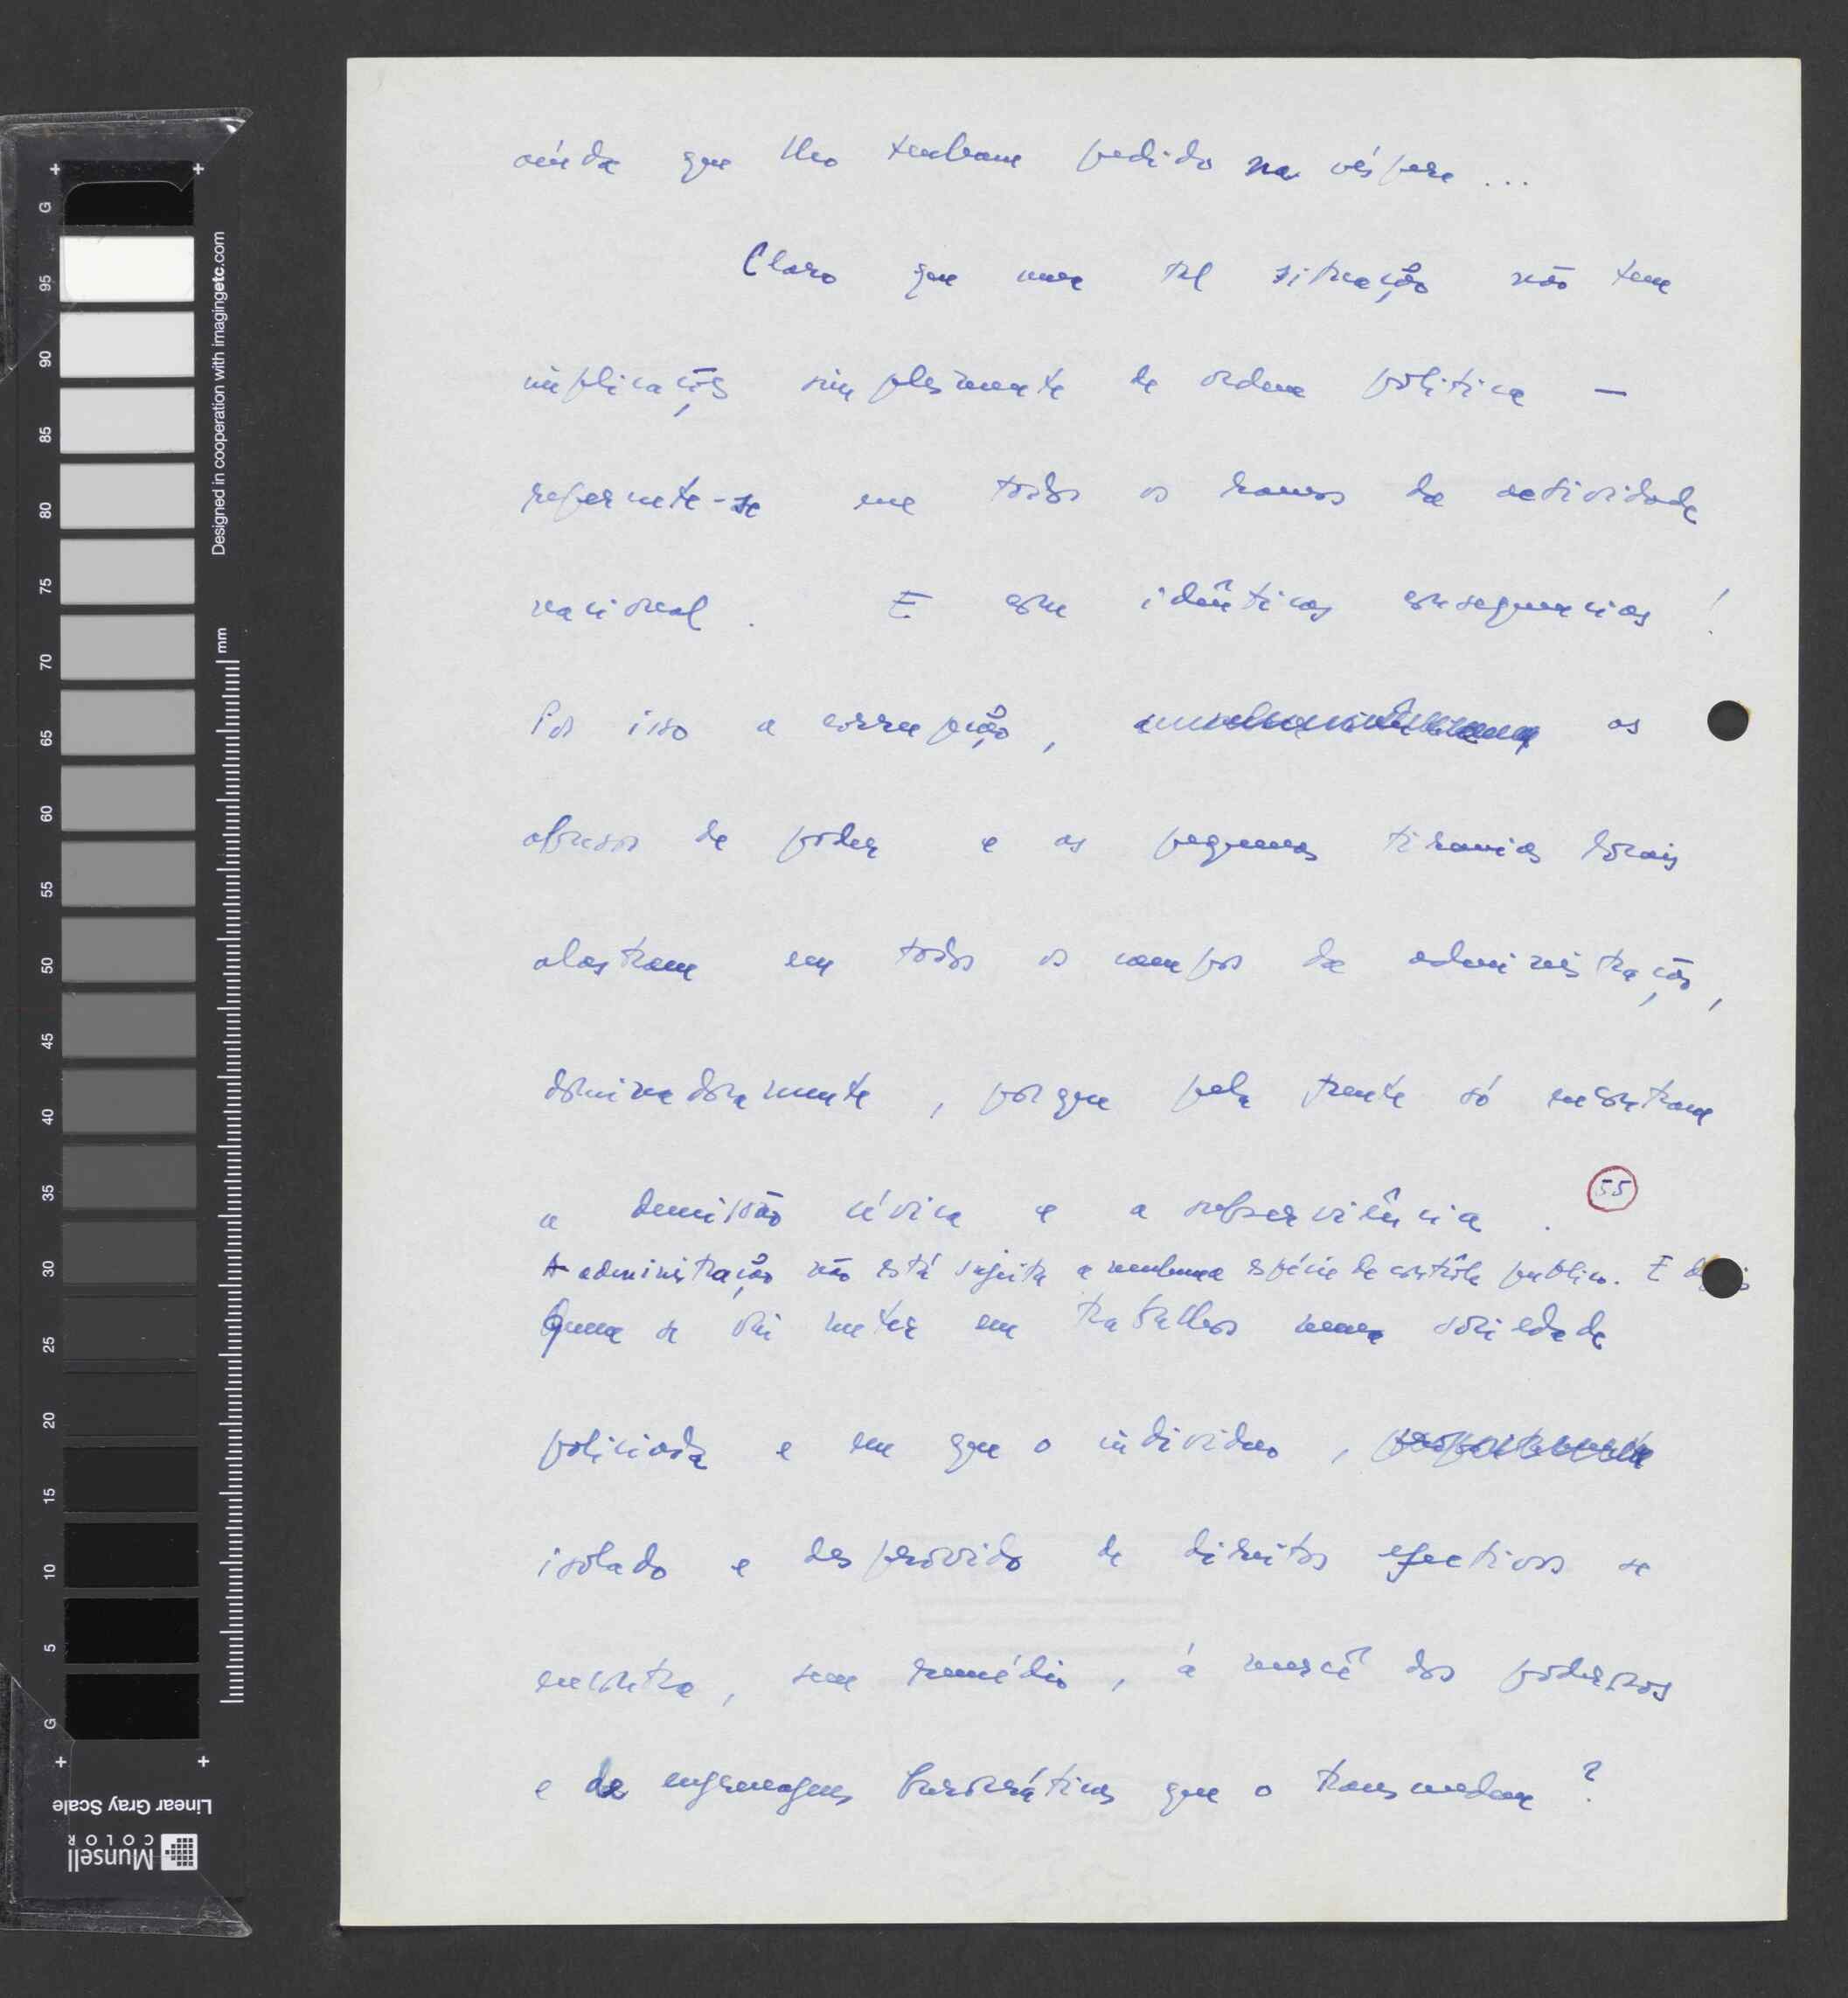 ainda que lho tenham pedido na véspera ...
Claro que uma tal situação não tem
implicações simplesmente de ordem politica —
repercute-se em todos os ramos da actividade
nacional. E com idênticas consequencias !
Por isso a corrupção, os
abusos de poder e as pequenas tiranias locais
alastram em todos os campos da administração,
dominadoramente, porque pela frente só encontram
a demissão cívica e a subserviência. 55
A administração não está sujeita a nenhuma espécie de contrôle publico. E depois
Quem se vai meter em trabalhos numa sociedade
policiada e em que o individuo,
isolado e desprovido de direitos efectivos se
encontra, sem remédio, à mercê dos poderosos
e de engrenagens burocráticas que o transcendem ?
Designed in cooperation with imagingetc.com
mm
G 95 90 85 80 75 70 65 60 55 50 45 40 35 30 25 20 15 10 5 G
Linear Gray Scale
Munsell
COLOR